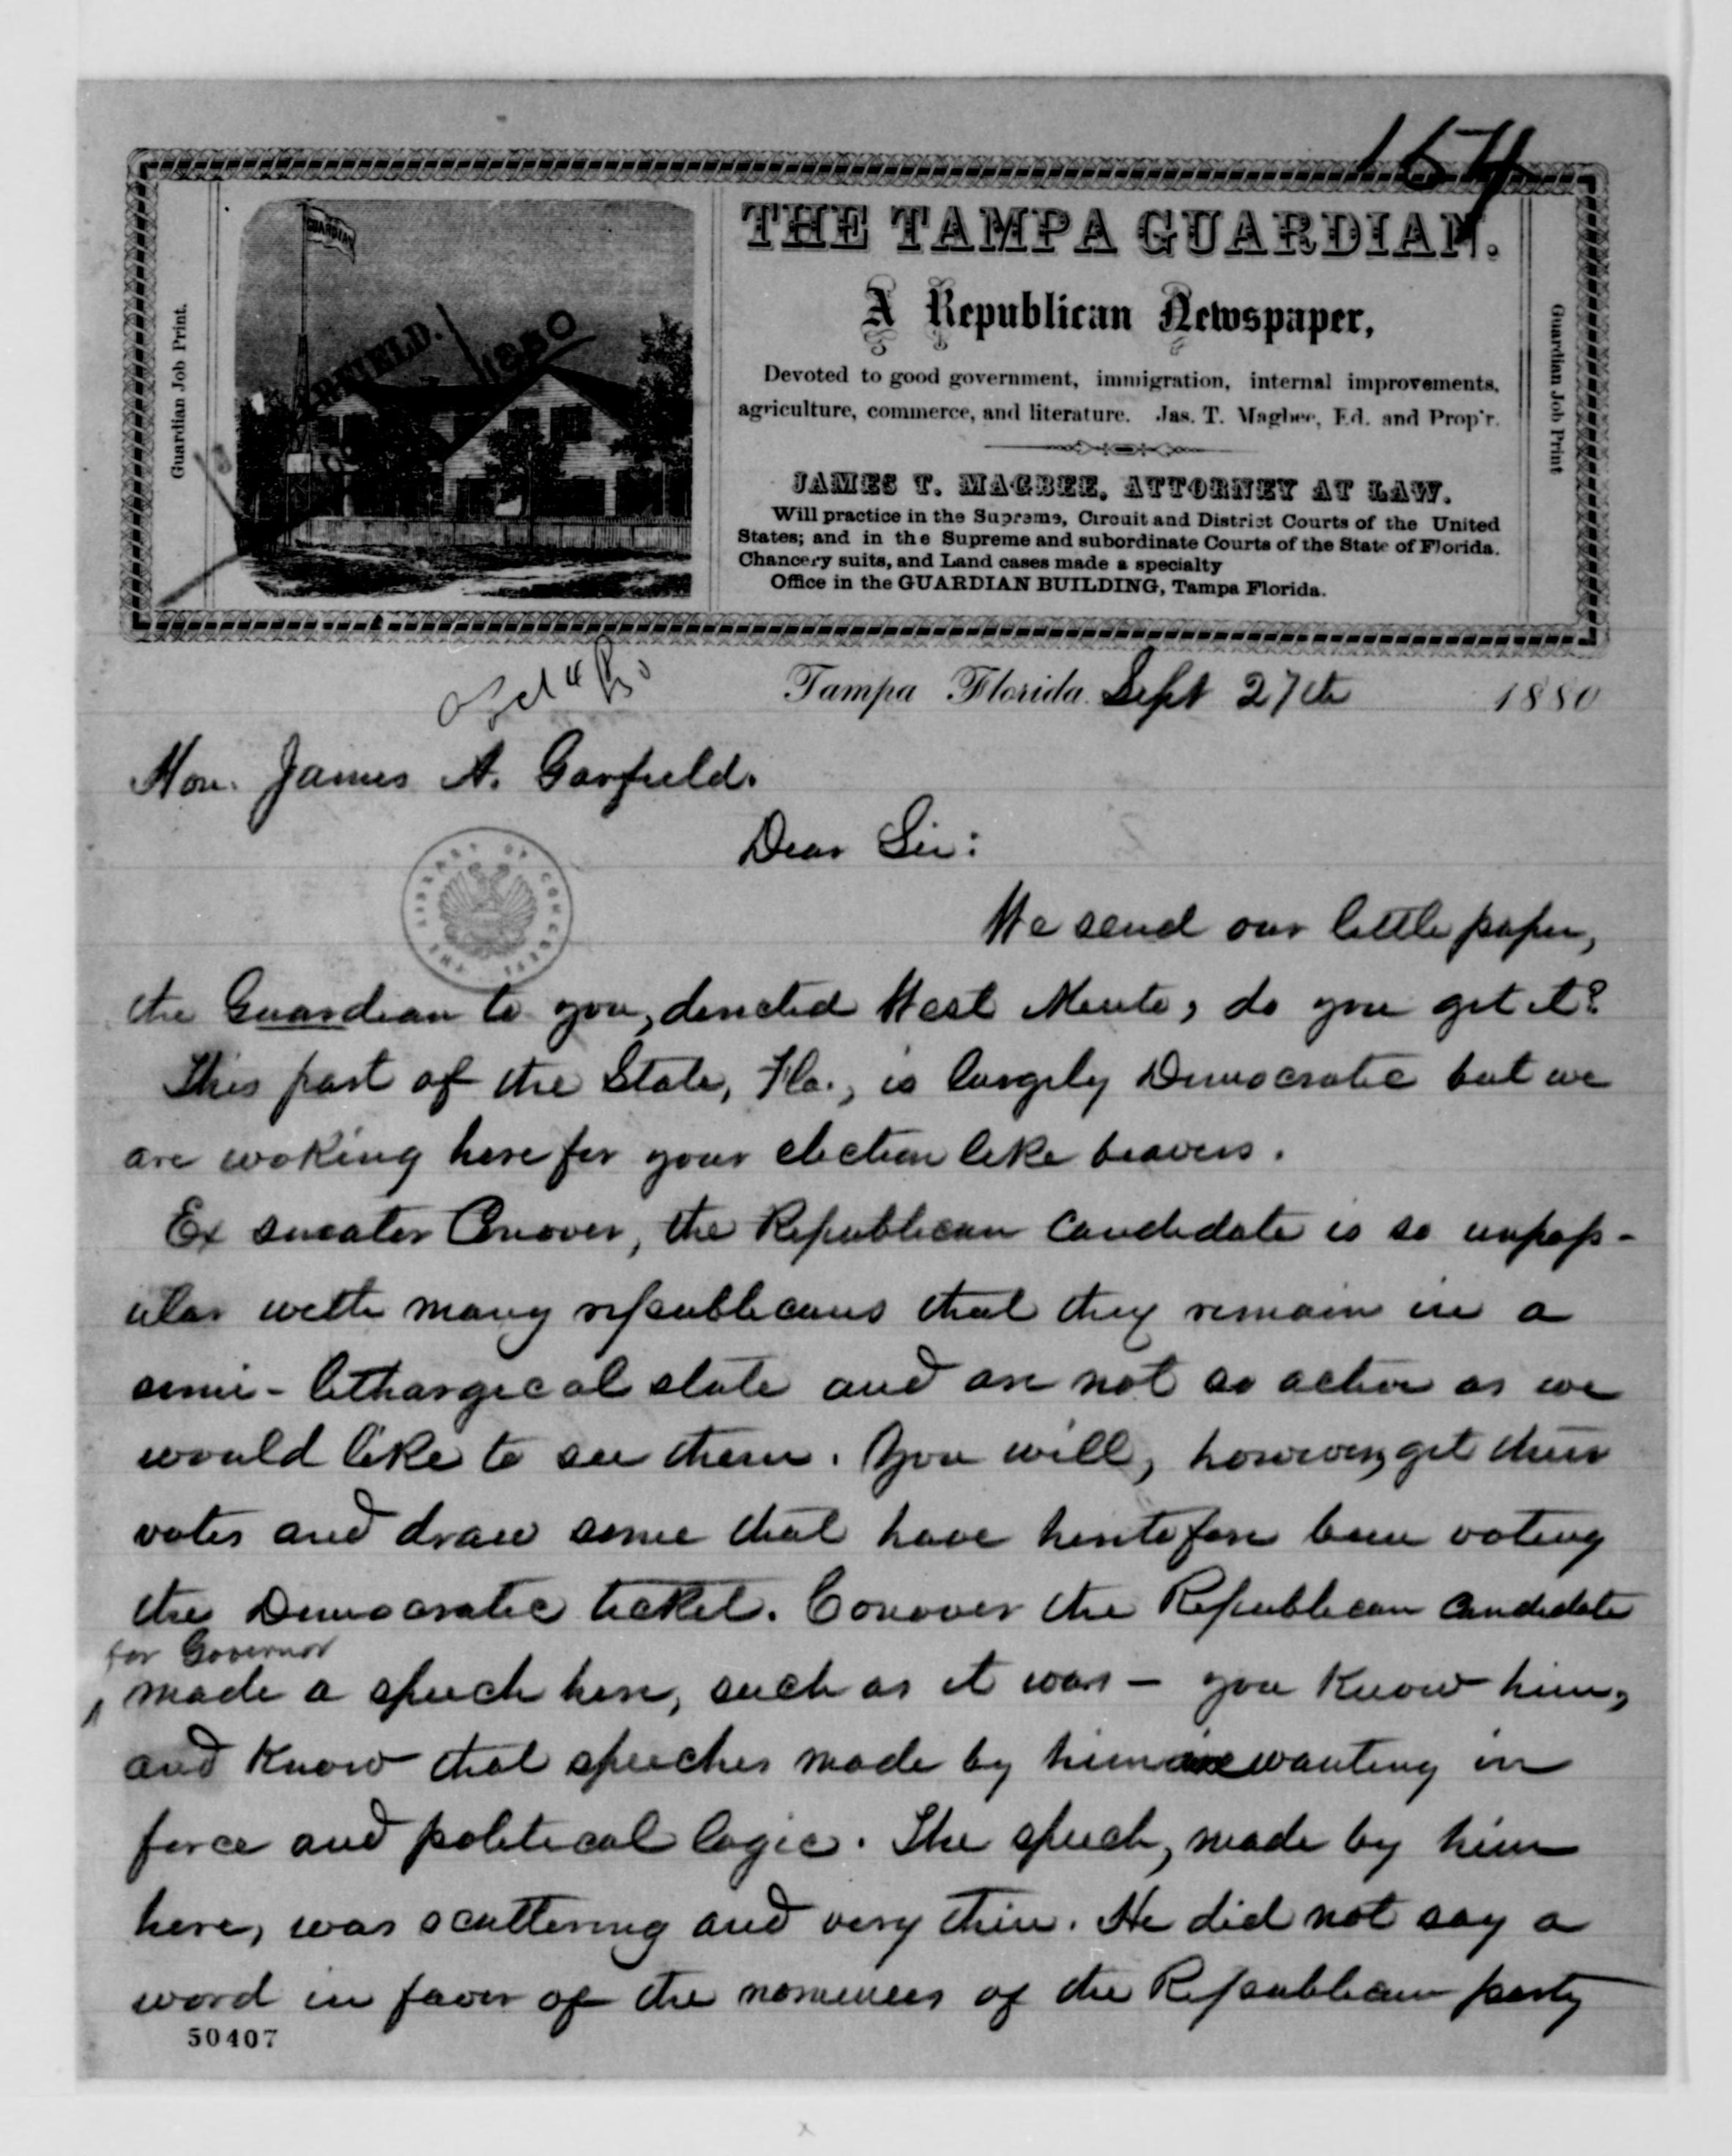 154
GUARDIAN
GARFIELD.
1880
Guardian Job Print.
THE TAMPA GUARDIAN.
A Republican Newspaper,
Devoted to good government, immigration, internal improvements,
agriculture, commerce, and literature. Jas. T. Magbee, Ed. and Prop'r.
JAMES T. MAGBEE, ATTORNEY AT LAW.
Will practice in the Supreme, Circuit and District Courts of the United
States; and in the Supreme and subordinate Courts of the State of Florida.
Chancery suits, and Land cases made a specialty
Office in the GUARDIAN BUILDING, Tampa Florida.
Guardian Job Print
Tampa Florida. Sept 27th 1880
Hon. James A. Garfield.
Dear Sir:
THE LIBRARY OF CONGRESS
We send our little paper,
the Guardian to you, directed West Mento, do you get it?
This part of the State, Fla., is largely Democratic but we
are woking here for your election like beavers.
Ex senator Conover, the Republican Candidate is so unpop-
ular with many republicans that they remain in a
semi-lethargical state and are not as active as we
would like to see them. You will, however, get their
votes and draw some that have heretofore been voting
the Democratic ticket. Conover the Republican Candidate
for Governor
made a speech here, such as it was - you Know him,
and Know that speeches made by him are wanting in
force and political logic. The speech, made by him
here, was scattering and very thin. He did not say a
word in favor of the nominees of the Republican party
50407